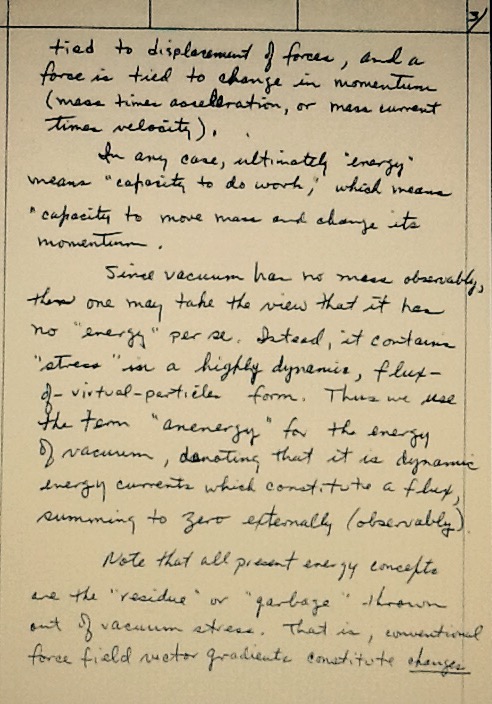 3/
tied to displacement of forces, and a
force is tied to change in momentum
(mass times acceleration, or mass current
times velocity).
In any case, ultimately "energy"
means "capacity to do work," which means
"capacity to move mass and change its
momentum.
Since vacuum has no mass observably,
then one may take the view that it has
no "energy" per se. Istead, it contains
"stress" in a highly dynamic, flux-
of-virtual-particles form. Thus we use
the term "anenergy" for the energy
of vacuum, denoting that it is dynamic
energy currents which constitute a flux,
summing to zero externally (observably).
Note that all present energy concepts
are the "residue" or "garbage" thrown
out of vacuum stress. That is, conventional
force field vector gradients constitute changes